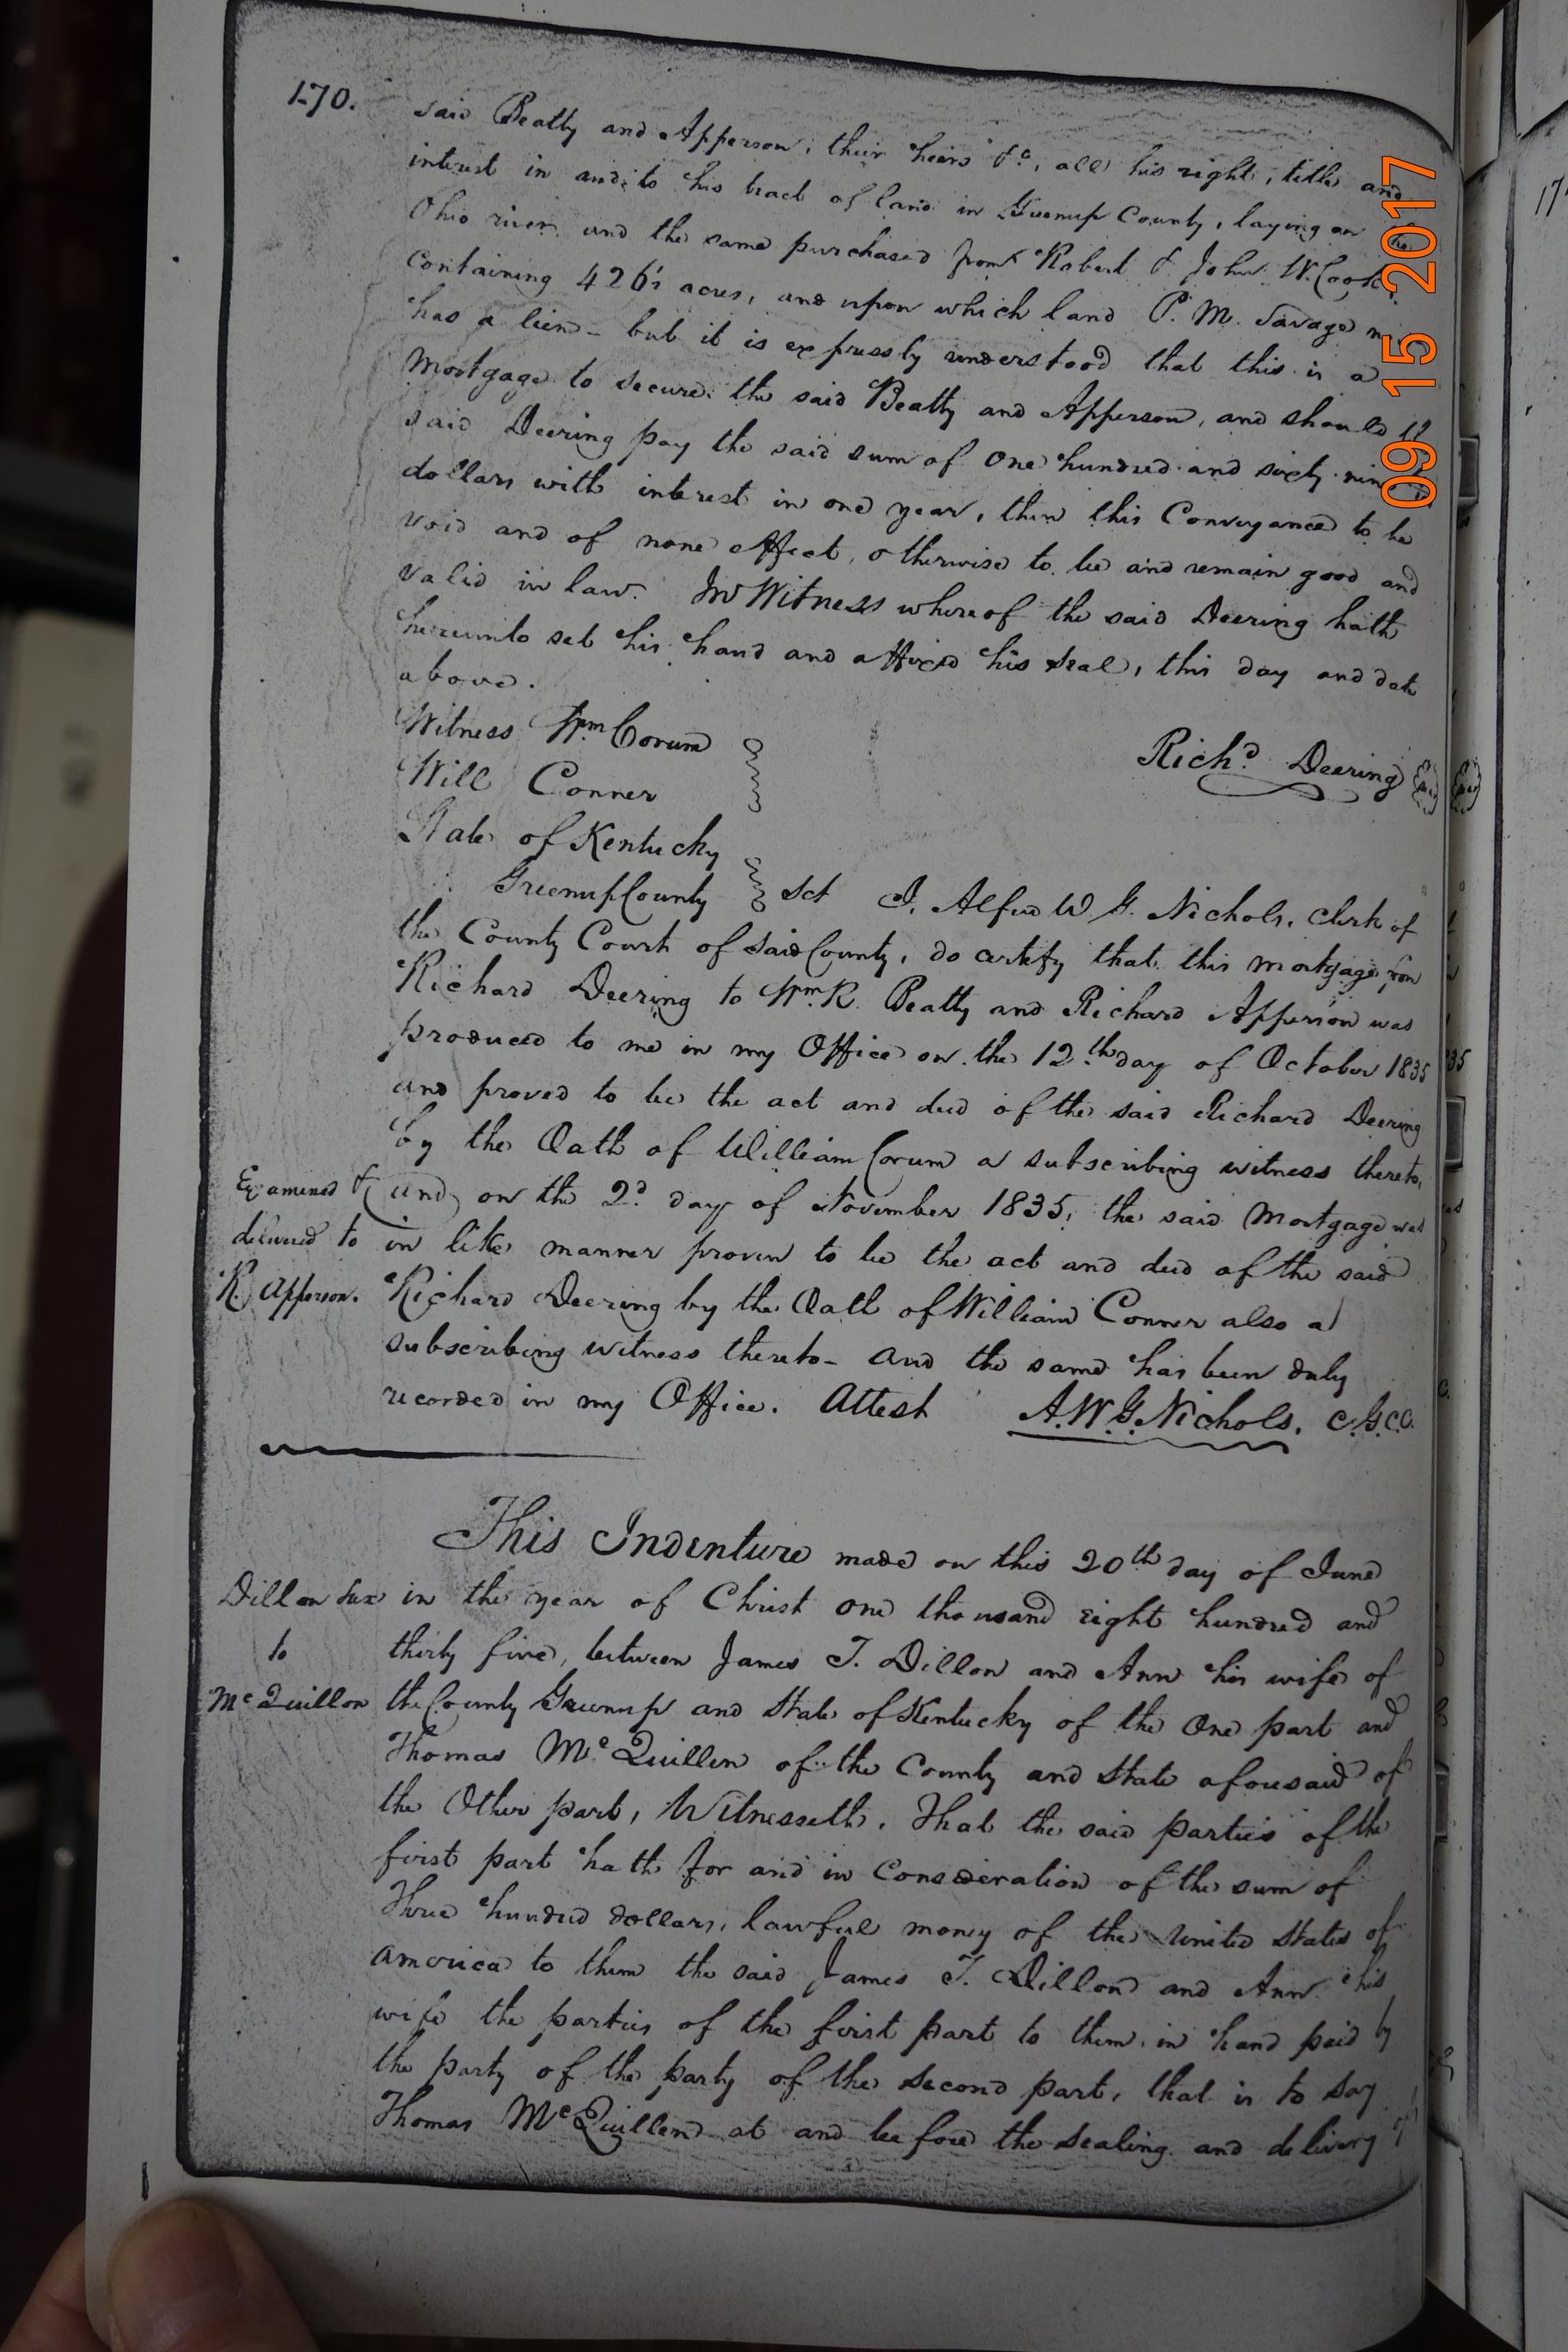 170.
said Beatty and Apperson, their heirs &c, all his right, title and
interest in and to his tract of land in Greenup County, laying on the
Ohio river and the same purchased from Robert & John W. Cook,
Containing 426 1/2 acres, and upon which land P. M. Savage
has a lien - but it is expressly understood that this is a
Mortgage to secure the said Beatty and Apperson, and should the
said Deering pay the said sum of One hundred and sixty nine
dollars with interest in one year, then this Conveyance to be
void and of none effect, otherwise to be and remain good and
valid in law. In Witness whereof the said Deering hath
hereunto set his hand and affixed his seal, this day and date
above.
Witness Wm Corum
Will Conner
Richd. Deering
State of Kentucky
Greenup County Sct I, Alfred W G. Nichols, Clerk of
the County Court of said County, do certify that this mortgage from
Richard Deering to Wm R. Beatty and Richard Apperson was
produced to me in my Office on the 12th day of October 1835
and proved to be the act and deed of the said Richard Deering
by the Oath of William Corum a subscribing witness thereto,
and on the 2d day of November 1835, the said Mortgage was
in like manner proven to be the act and deed of the said
Richard Deering by the Oath of William Conner also a
subscribing witness thereto - And the same has been duly
recorded in my Office. Attest A. W. G. Nichols, C.G.C.C.
Examined &
delivered to
R. Apperson.
This Indenture made on this 20th day of June
in the year of Christ one thousand eight hundred and
thirty five, between James T. Dillon and Ann his wife of
the County Greenup and State of Kentucky of the One part and
Thomas McQuillen of the County and State aforesaid of
the Other part, Witnesseth, That the said parties of the
first part hath for and in Consideration of the sum of
Three hundred dollars, lawful money of the United States of
America to them the said James T. Dillon and Ann his
wife the parties of the first part to them in hand paid by
the party of the party of the second part, that is to say
Thomas McQuillen at and before the sealing and delivery
Dillon &ux
to
McQuillon
09 15 2017